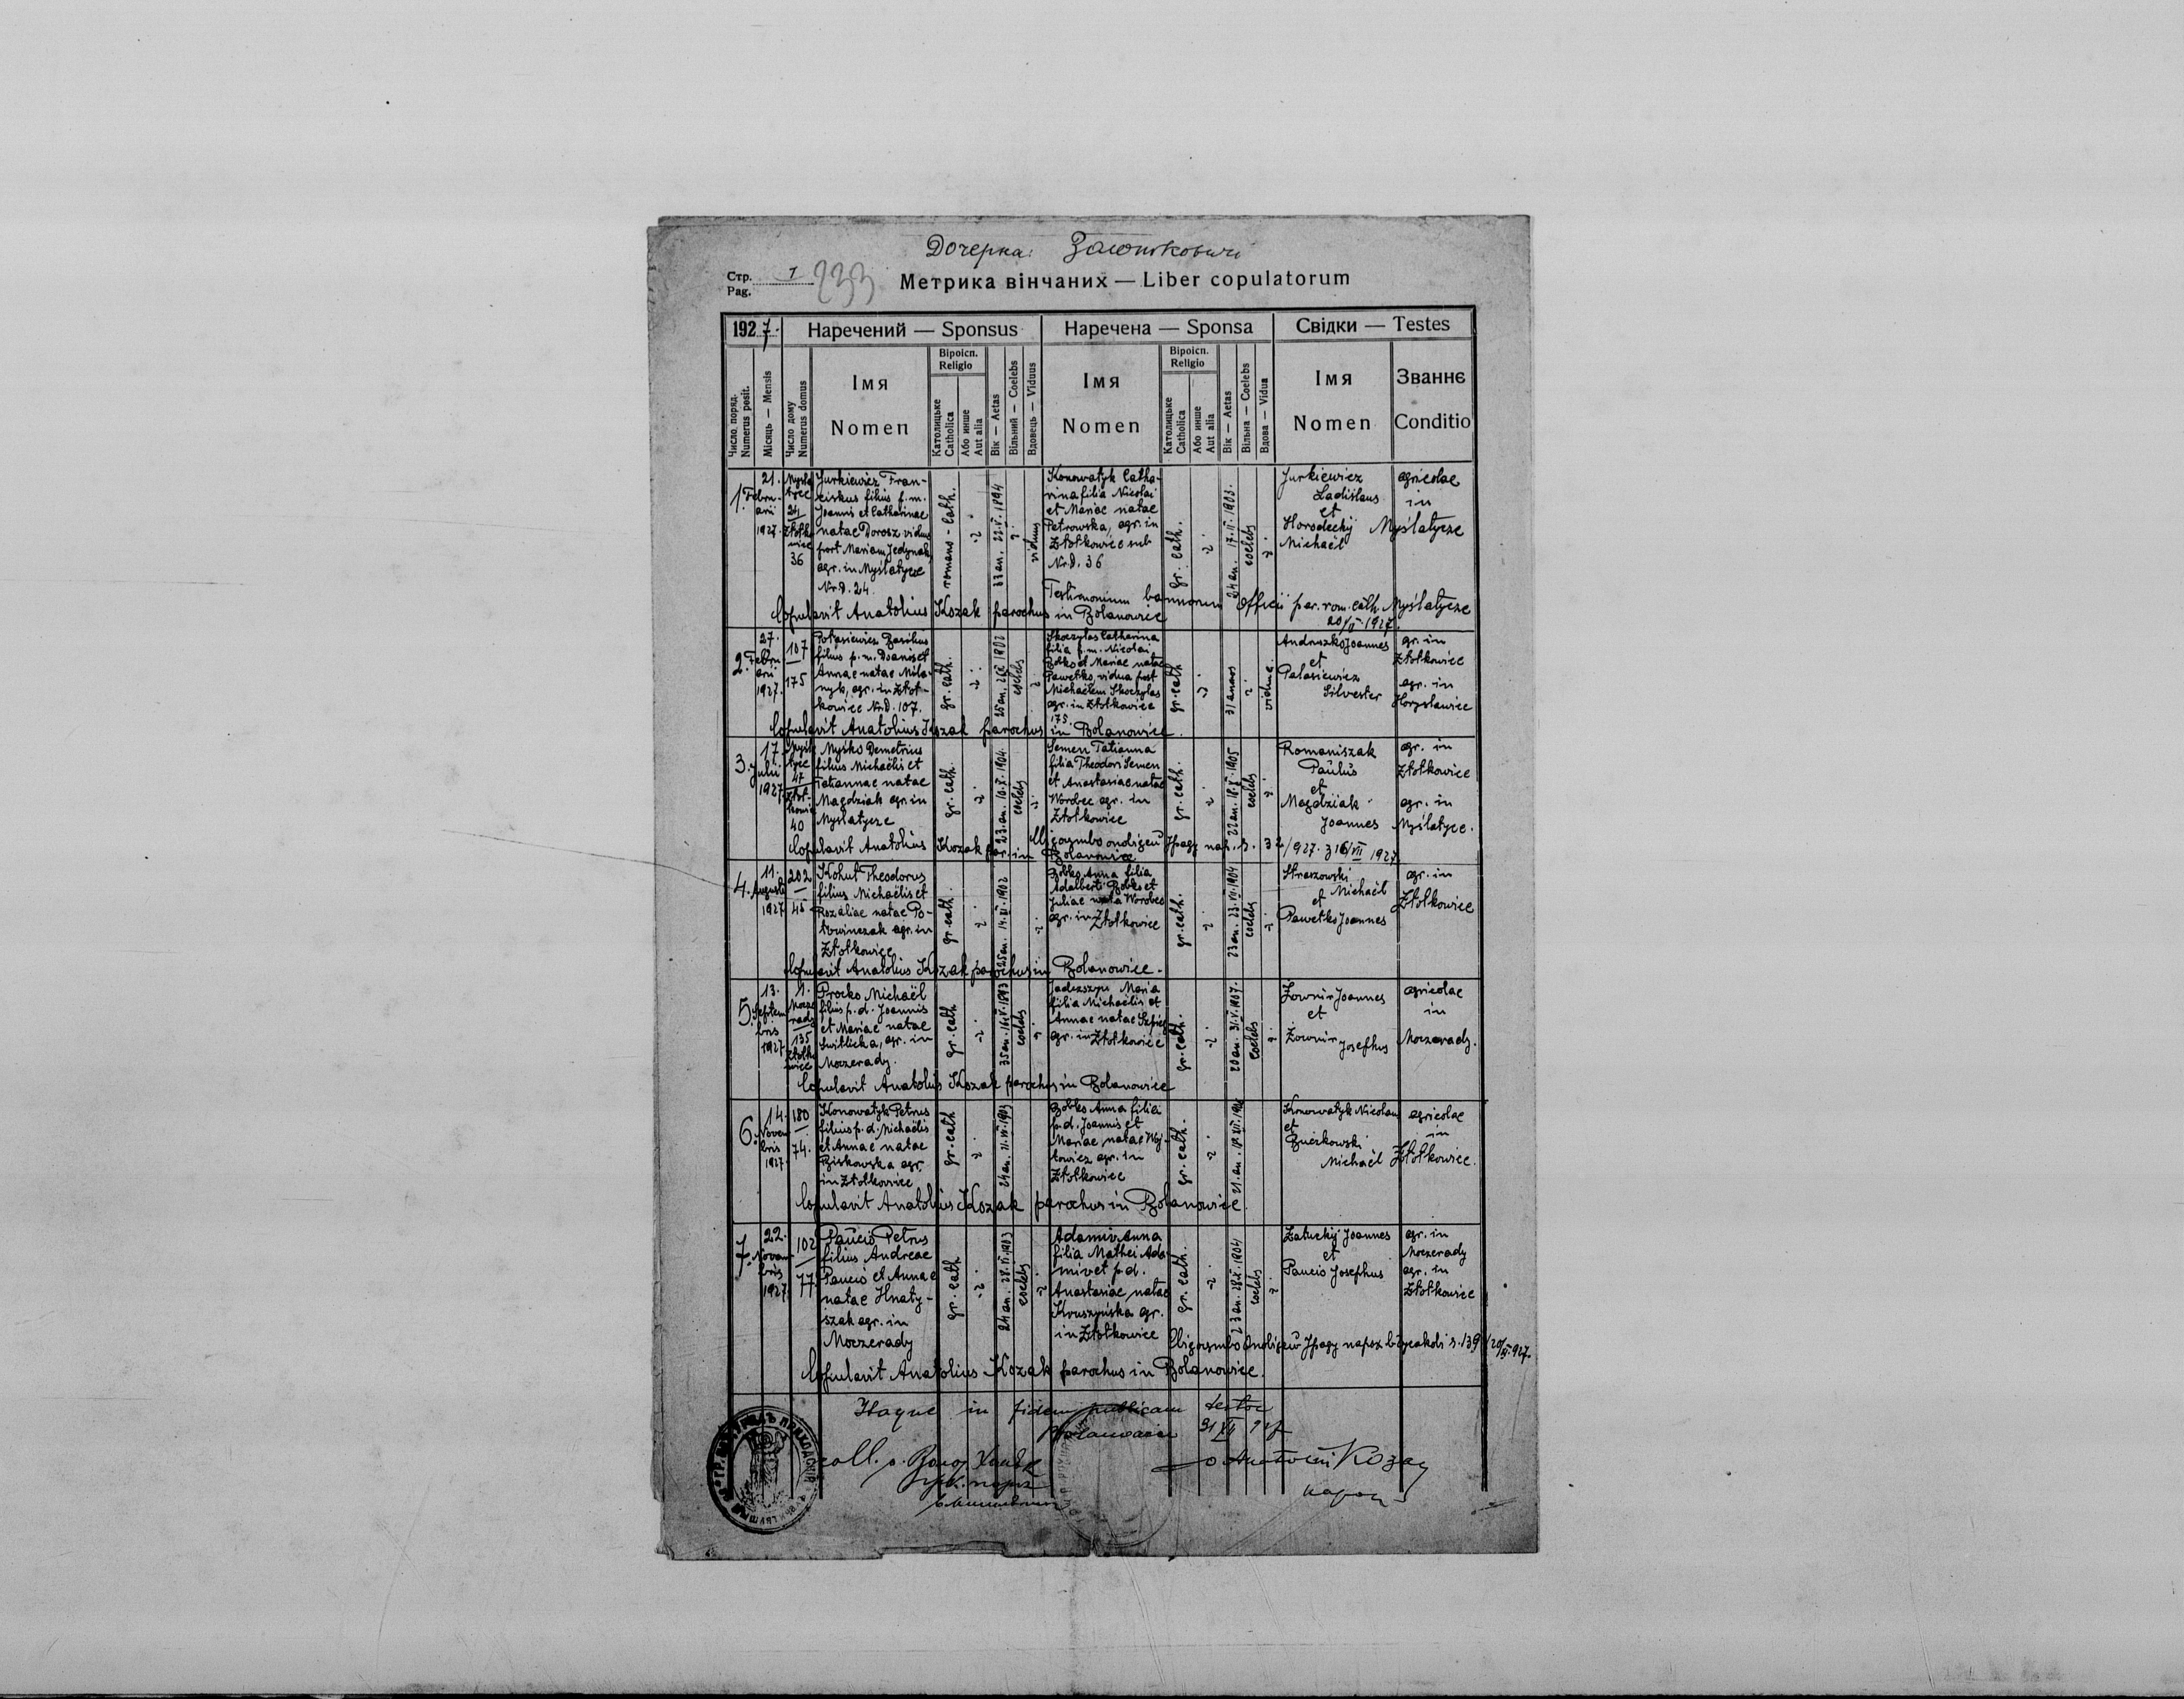 Дочерна:
Стр. 1
Pag.
233
Метрика вінчаних — Liber copulatorum
1927.
Наречений — Sponsus
Наречена — Sponsa
Свідки — Testes
Число поряд.
Numerus posit.
Місяць — Mensis
Число дому
Numerus domus
Імя
Nomen
Віроісп.
Religio
Католицьке
Catholica
Або инше
Aut alia
Вік — Aetas
Вільний — Coelebs
Вдовець — Viduus
Імя
Nomen
Віроісп.
Religio
Католицьке
Catholica
Або инше
Aut alia
Вік — Aetas
Вільна — Coelebs
Вдова — Vidua
Імя
Nomen
Званнє
Conditio
1.
21.
Febru-
arii
1927.
24
36
Jurkiewicz Fran-
ciskus filius p.m.
Joannis et Catharinae
natae Dorosz viduus
post Mariam Jedynak,
agr. in Myślatycze
Nr.D. 24.
romano-cath.
33 an.
viduus
Konowatyk Catha-
rina filia Nicolai
et Mariae natae
Petrowska, agr. in
Złotkowice sub
Nr.D. 36
gr. cath.
24 an. 17.II.1903.
coelebs
Jurkiewicz
Ladislaus
et
Horodeckij
Michaël
agricolae
in
Myślatycze
Testimonium bannorum Officii par. rom. cath. Myślatycze
20/II 1927.
Copulavit Anatolius Kozak parochus in Bolanowice
2.
27.
Febru
arii
1927.
107
175
Potasiewicz Basilius
filius p.m. Joannis et
Annae natae Mila-
nyk, agr. in Złot-
kowice Nr.D. 107.
gr. cath.
coelebs
Skoczylas Catharina
filia p.m. Nicolai
Bobko et Mariae natae
Pawełko, vidua post
Michaëlem Skoczylas
agr. in Złotkowice
175.
gr. cath
31 annos
vidua.
Andruszko Joannes
et
Palasiewicz
Silvester
gr. in
Złotkowice
agr. in
Horysławice
Copulavit Anatolius Kozak parochus in Bolanowice.
3.
17.
Julii
1927
47
40
Myśko Demetrius
filius Michaëlis et
Tatiannae natae
Magdziak agr. in
Myślatycze
gr. cath.
23. an. 10.X.1904.
coelebs
Semen Tatianna
filia Theodori Semen
et Anastasiae natae
Worobec agr. in
Złotkowice
gr. cath.
22 an. 18.X.1905
coelebs
Romaniszak
Paulus
et
Magdziak
Joannes
agr. in
Złotkowice
agr. in
Myślatycze.
Copulavit Anatolius Kozak par. in Bolanowice
4.
11.
Augusti
1927
202
45
Kohut Theodorus
filius Michaëlis et
Rozaliae natae Po-
agr. in
Złotkowice
gr. cath.
25 an. 14.VI.1902
Bobko Anna filia
Adalberti Bobko et
Juliae nata Worobec
agr. in Złotkowice
gr. cath.
23 an. 23.VII.1904
coelebs
Straszowski
Michaël
et
Pawełko Joannes
agr. in
Złotkowice
Copulavit Anatolius Kozak parochus in Bolanowice.
5.
13.
Septem
bris
1927
11.
135
Procko Michaël
filius p.d. Joannis
et Mariae natae
Switlicka, agr. in
Moczerady.
gr. cath
coelebs
Maria
filia Michaëlis et
Annae natae
agr. in Złotkowice
gr. cath.
20 an. 31.V.1907.
coelebs
Zownir Joannes
et
Zownir Josephus
agricolae
in
Moczerady.
Copulavit Anatolius Kozak parochus in Bolanowice
6.
14.
Novem
bris
1927.
180
74.
Konowatyk Petrus
filius p.d. Michaëlis
et Annae natae
Biskowska agr.
in Złotkowice
gr. cath
24 an.
Bobko Anna filia
p.d. Joannis et
Mariae natae Woj-
towicz agr. in
Złotkowice
gr. cath.
21. an.
Konowatyk Nicolaus
et
Buczkowski
Michaël
agricolae
in
Złotkowice.
Copulavit Anatolius Kozak parochus in Bolanowice
7.
22.
Novem
bris
1927.
102
77.
Paucio Petrus
filius Andreae
Paucio et Annae
natae Hnaty-
szak agr. in
Moczerady
gr. cath
24 an.
coelebs
Adamiv Anna
filia Mathei Ada-
miv et p.d.
Anastasiae natae
Kruszyńska agr.
in Złotkowice
gr. cath.
23 an. 28.X.1904
coelebs
Załuckij Joannes
et
Paucio Josephus
agr. in
Moczerady
agr. in
Złotkowice
Copulavit Anatolius Kozak parochus in Bolanowice.
Itaque in fidem publicam testor
Bolanowice 31 XII 927